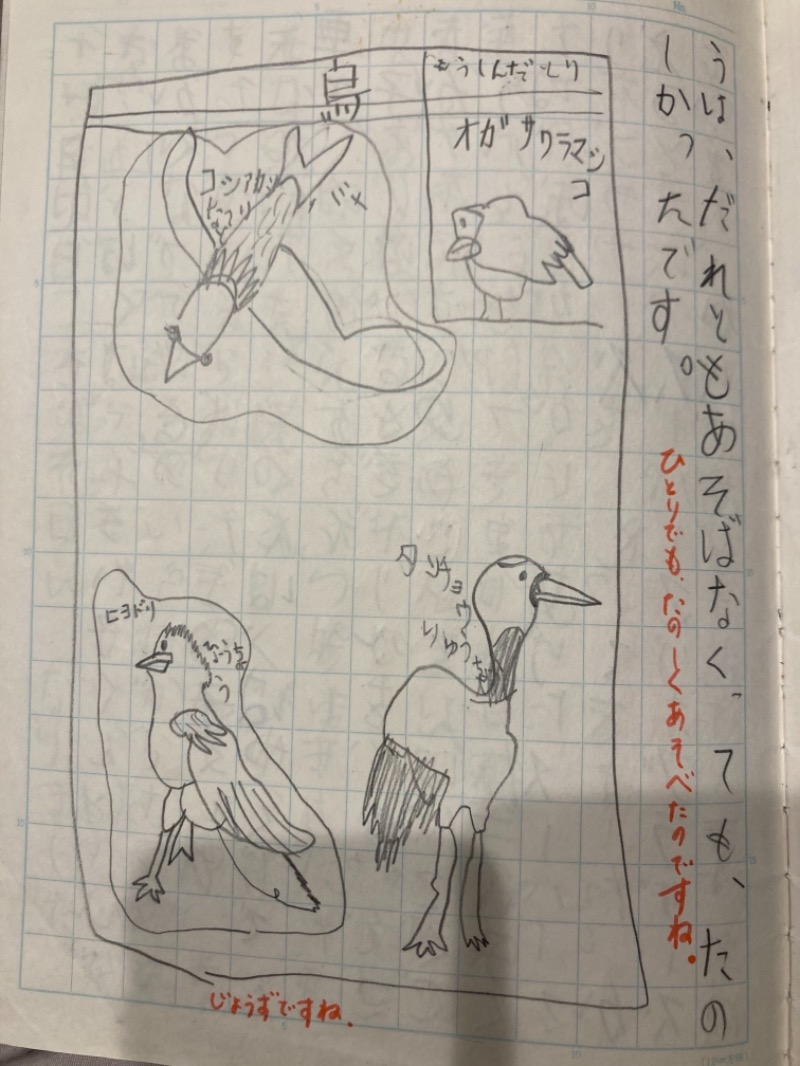 うは、だれともあそばなくっても、たの
しかったです。
ひとりでも、たのしくあそべたのですね。
もうしんだとり
オガサワラマシ
コ
鳥
コシアカツ
バメ
タンチョウ
ヒヨドリ
じょうずですね。